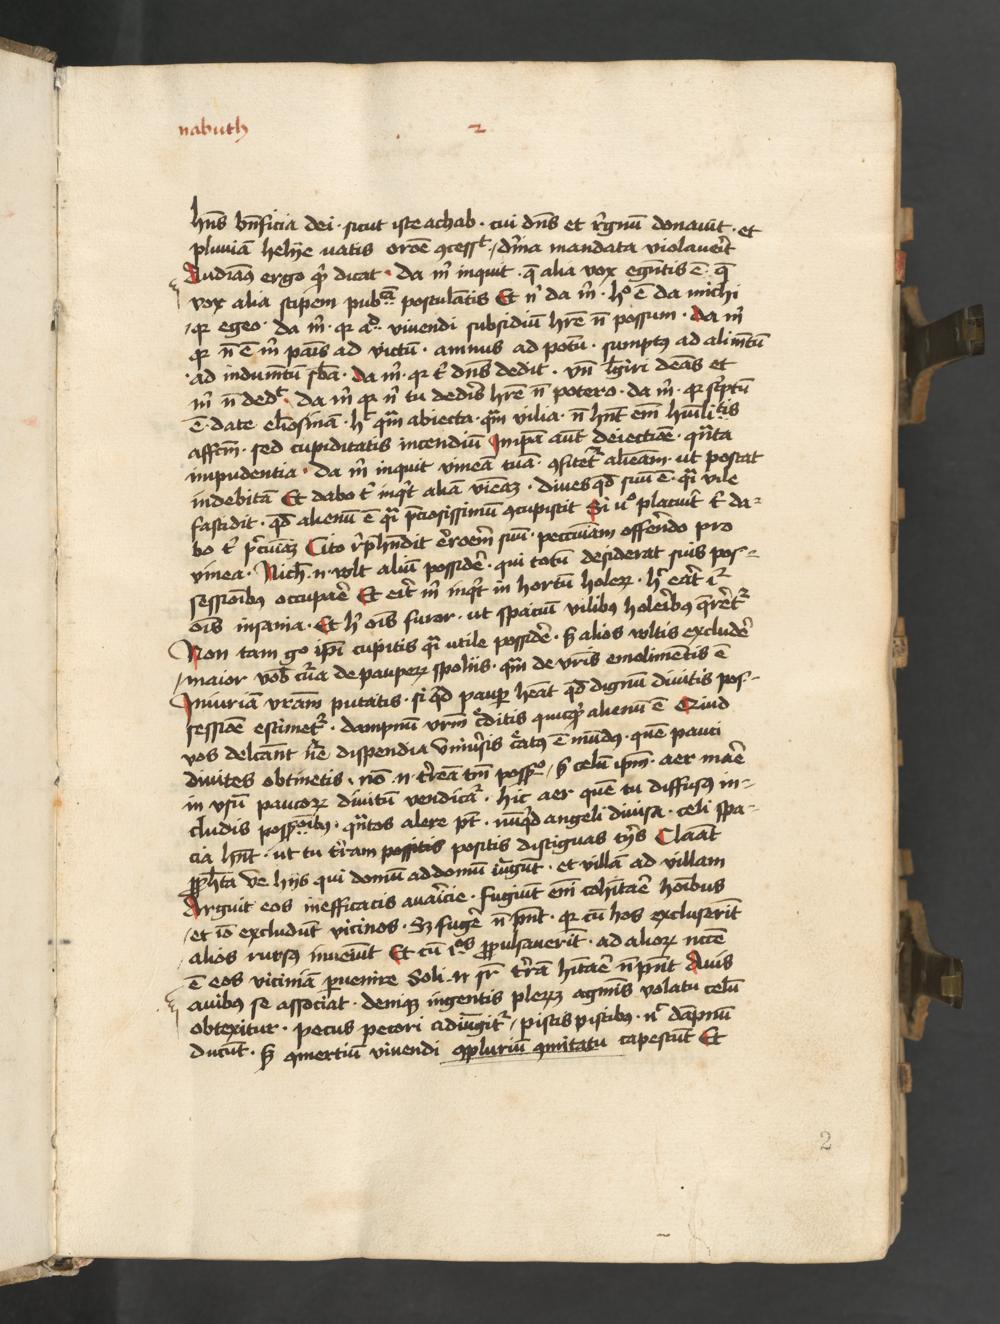 nabuth 2
hn̄s bn̄ficia dei · sicut iste achab · cui dn̄s et r̄gnū donauit · et
pluuiā helye uatis orōe ɔcessᵗ / dīna mandata violauer̄t
Audiam⁹ ergo qͥ dicat · da m̄ inquit · q̄ alia vox egen̄tis ē · q̄
vox alia stipem pubᶜā postulātis Et nͥ da m̄ · hͦ ē da michi
/ qꝛ egeo · da m̄ · qꝛ aᵈ viuendi subsidiū hr̄e n̄ possum · da m̄
qꝛ n̄ ē m̄ panis ad victū · amnus ad potū · sumptꝰ ad alim̄tū
· ad indum̄tū sb̄a · da m̄ · qꝛ tͥ dn̄s dedit · vn̄ l̄giri deās et
m̄ n̄ dedͭ · da m̄ qꝛ nͥ tu dedis̄ hr̄e n̄ potero · da m̄ · qꝛ scͥptū
ē · date eliosinā · hͨ qͣm abiecta · qͣm vilia · n̄ hn̄t em̄ huīliᵗtis
affcm̄ · sed cupiditatis incendiū Impā aut̄ deiectiōe · qn̄ta
inpudentia · da m̄ inquit vineā tuā · ɔfitetᷣ alienam · ut poscat
indebitā Et dabo tͥ inqͥt aliā vieaz̄ · diues qd̄ suū ē · qͣi vile
fastidit · qd̄ alienū ē qͣi p̄ciosissimū ɔcupiscit Si uͦ placuit tͥ da-
bo tͥ p̄cūiaz Cito r̄phn̄dit er̄roem̄ suū · peccūiam offer̄do pro
vinea · Nich̄ · n · vlt aliū possidē · qui totū desiderat suis pos-
sessioībꝰ occupar̄e Et erit̄ m̄ inqͥt in hortū holeꝝ · hͨ eāt iᵃ
oīs insania · Et hͨ oīs furor · ut spaciū vilibꝰ holeribꝰ q̄retᷣ
Non tam go ip̄i cupitis qͣi utile possidē · s̄ʒ alios vltis excludē
/ maior vob̄ cūra de pauperꝝ spoliis · qͣm de vr̄is emolimētis ē
Iniuriā vrām putatis · si qͥd paup̄ heāt qd̄ dignū diuitis pos-
sessiōe estimetᷣ · dampnū vrm̄ cͥditis quicqͥd alienū ē Quid
vos delcānt nr̄e dispendia vniūsis cͥatꝰ ē mūdꝰ · quē pauci
diuites obtinetis · nō · n · tr̄eā tm̄ possͦ / s̄ʒ celū ip̄m · aer mar̄e
in vsū paucoꝝ diuitū vendicaᷣ · hic aer quē tu diffusꝰ in-
cludis possᷤoībꝰ · qn̄tos alere pt̄ · nūqͥd angeli diuisa · celi spa-
cia hn̄t · ut tu tr̄ram possitis positis distiguas tͥis Clamāt
pph̄ta ve hijs qui domū ad domū iūgunt · et villā ad villam
Arguit eos inefficacis auar̄icie · fugiūt em̄ cohītar̄e hoībus
/ et iō excludūt vicinos · Sʒ fugē n̄ pn̄t · qꝛ cū hos excluser̄it
alios rursꝰ inueiūt Et cū iᵒˢ ppulsauer̄it · ad alioꝝ nccē
ē eos viciniā puenire Soli · n · sr̄ tr̄rā hītar̄e n̄ pn̄t Auis
auibꝰ se associat · deniqꝫ ingentis pleꝝqꝫ agmīs volatu celū
obtexitur · pecus pecori adiūgitᷣ / piscis piscibꝰ · nͨ dāpnū
ducūt · s̄ʒ ɔmertiū viuendi ɔpluriū ɔmitatu capescūt Et
2